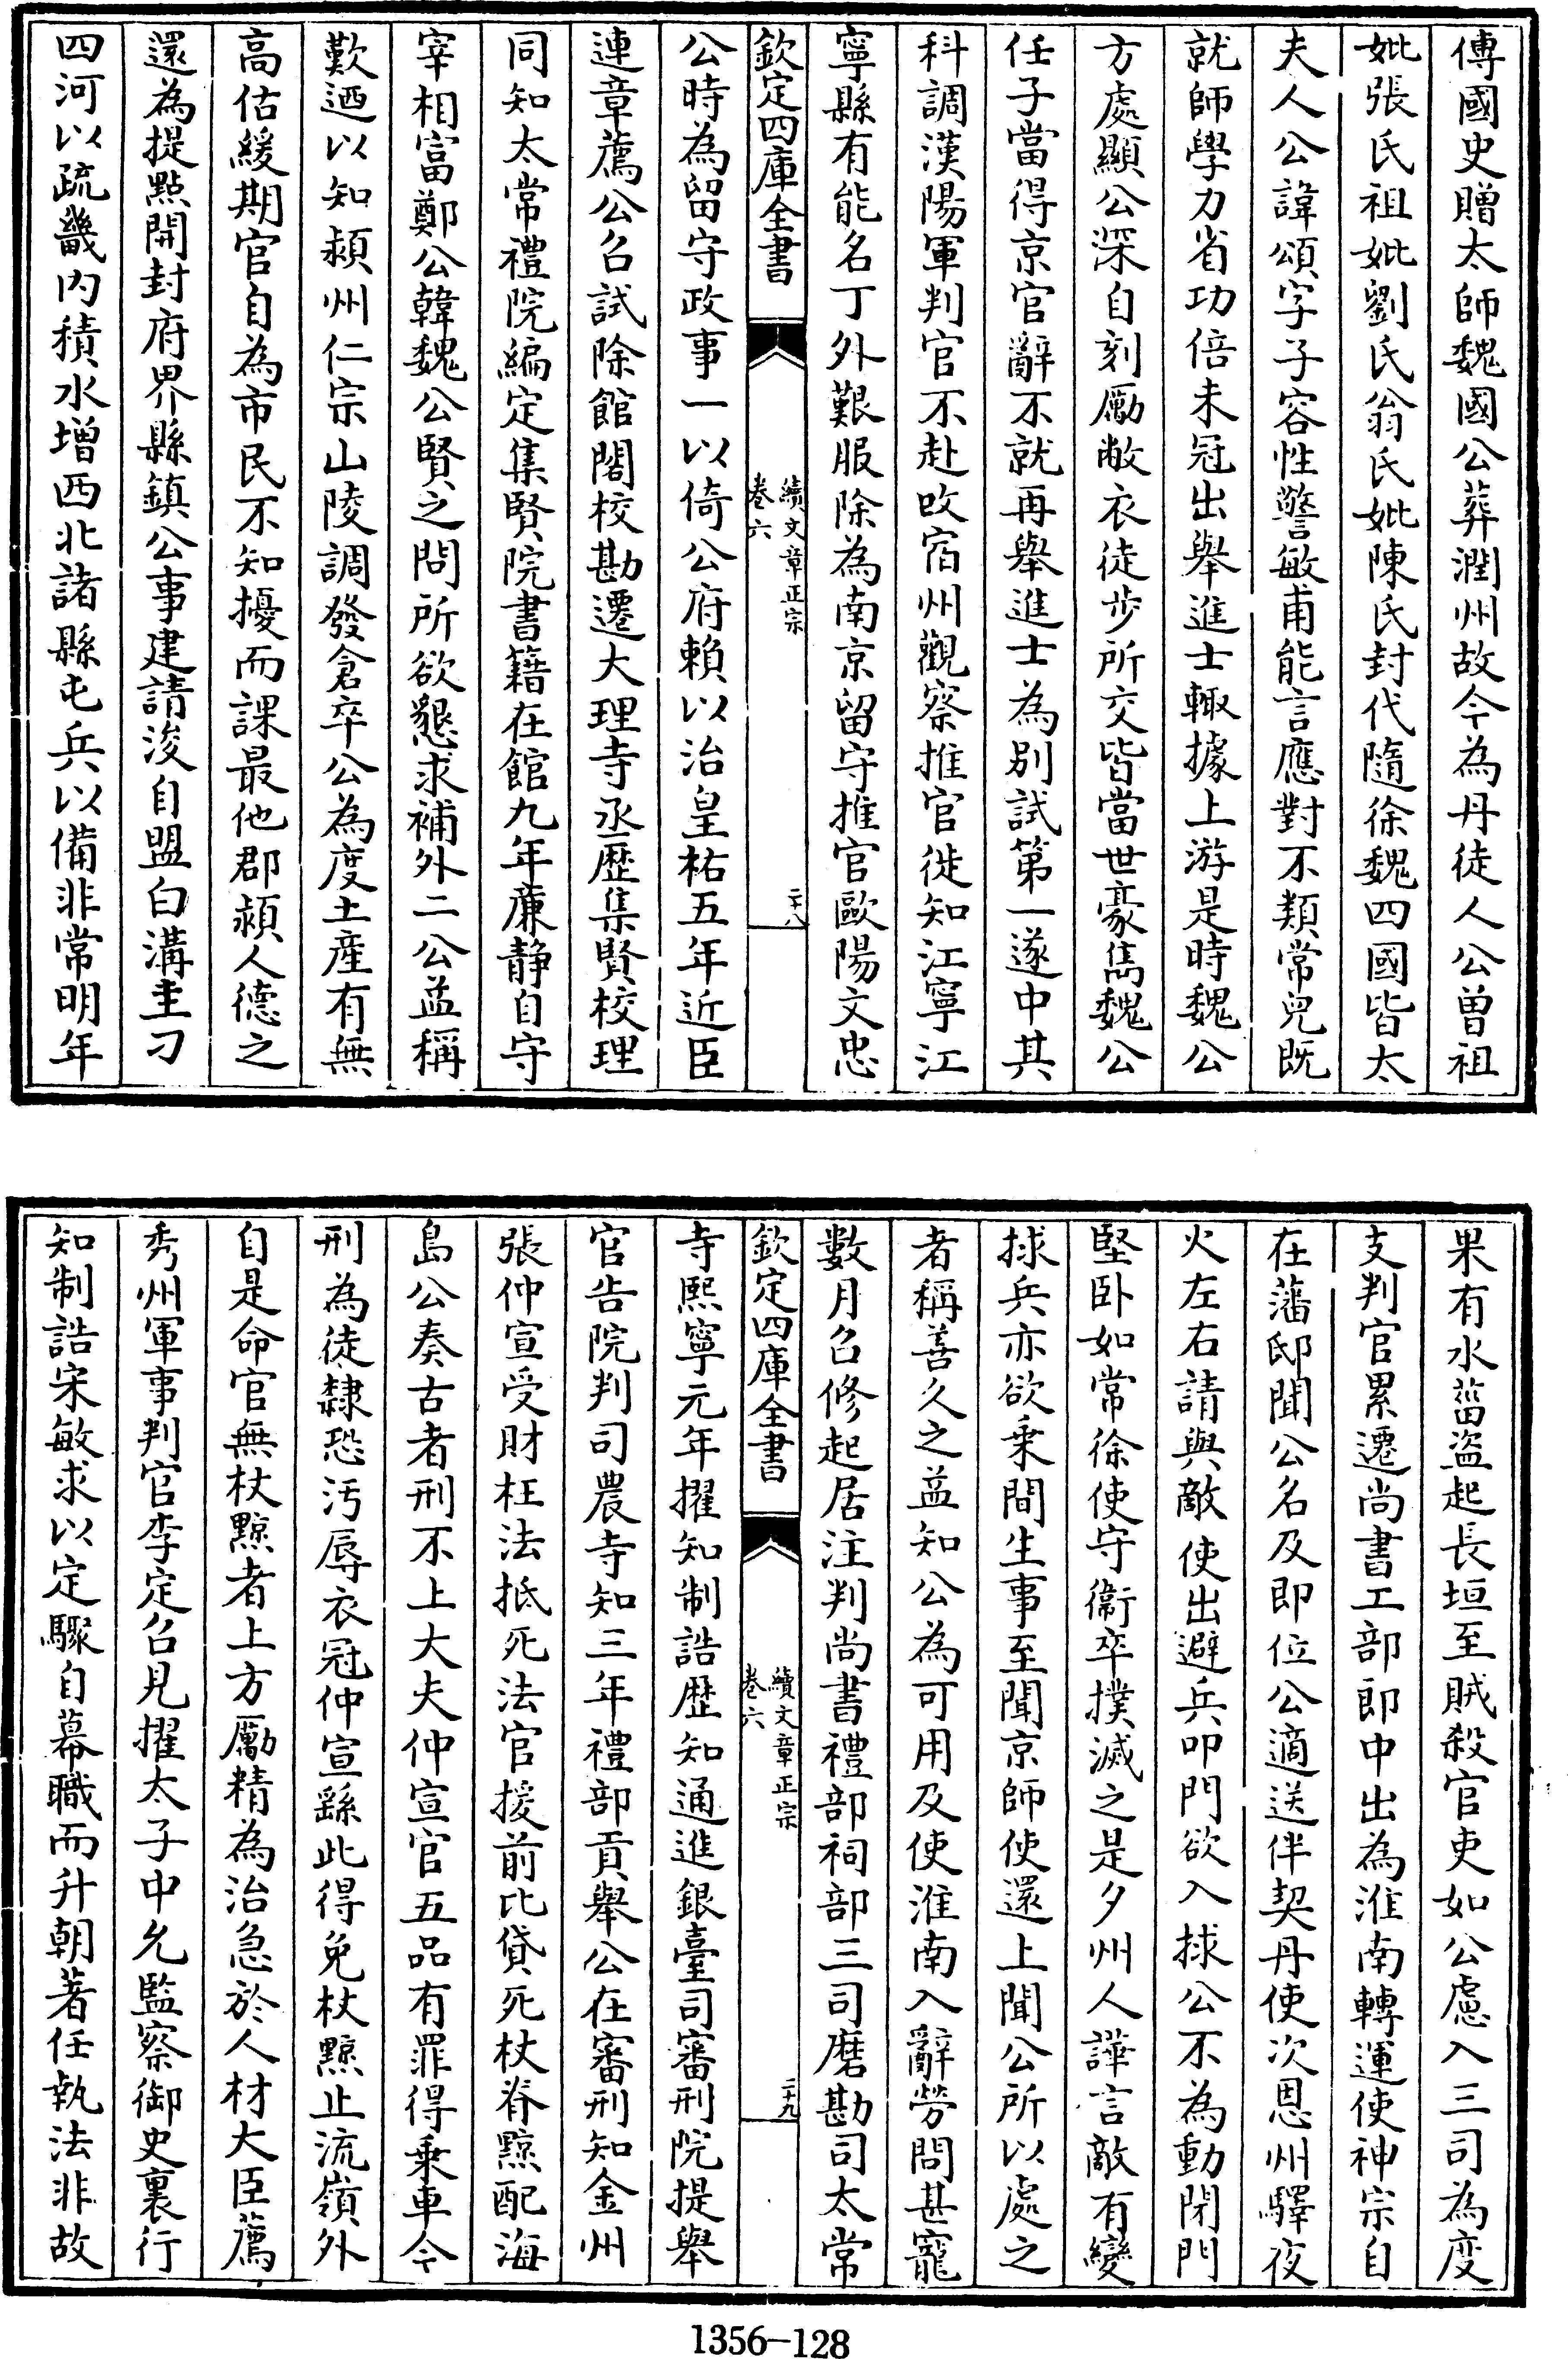 傳國史贈太師魏國公葬潤州故今為丹徒人公曽祖
妣張氏祖妣劉氏翁氏妣陳氏封代隨徐魏四國皆太
夫人公諱頌字子容性警敏甫能言應對不類常兒既
就師學力省功倍未冠出舉進士輙據上游是時魏公
方處顯公深自刻勵敝衣徒步所交皆當世豪雋魏公
任子當得京官辭不就再舉進士為别試第一遂中其
科調漢陽軍判官不赴改宿州觀察推官徙知江寧江
寧縣有能名丁外艱服除為南京留守推官歐陽文忠
欽定四庫全書
續文章正宗
卷六
二十八
公時為留守政事一以倚公府賴以治皇祐五年近臣
連章薦公召試除館閣校勘遷大理寺丞歴集賢校理
同知太常禮院編定集賢院書籍在館九年亷静自守
宰相富鄭公韓魏公賢之問所欲懇求補外二公益稱
歎廼以知潁州仁宗山陵調發倉卒公為度土産有無
高估緩期官自為市民不知擾而課最他郡潁人德之
還為提點開封府界縣鎮公事建請浚自盟白溝圭刁
四河以疏畿内積水增西北諸縣屯兵以備非常明年
果有水菑盗起長垣至賊殺官吏如公慮入三司為度
支判官累遷尚書工部郎中出為淮南轉運使神宗自
在藩邸聞公名及即位公適送伴契丹使次恩州驛夜
火左右請與敵使出避兵叩門欲入捄公不為動閉門
堅卧如常徐使守衞卒撲滅之是夕州人譁言敵有變
捄兵亦欲乗間生事至聞京師使還上聞公所以處之
者稱善久之益知公為可用及使淮南入辭勞問甚寵
數月召修起居注判尚書禮部祠部三司磨勘司太常
欽定四庫全書
續文章正宗
卷六
二十九
寺熙寧元年擢知制誥歴知通進銀臺司審刑院提舉
官告院判司農寺知三年禮部貢舉公在審刑知金州
張仲宣受財枉法抵死法官援前比貸死杖脊黥配海
島公奏古者刑不上大夫仲宣官五品有罪得乗車今
刑為徒隸恐污辱衣冠仲宣繇此得免杖黥止流嶺外
自是命官無杖黥者上方勵精為治急於人材大臣薦
秀州軍事判官李定召見擢太子中允監察御史裏行
知制誥宋敏求以定驟自幕職而升朝著任執法非故
1356—128